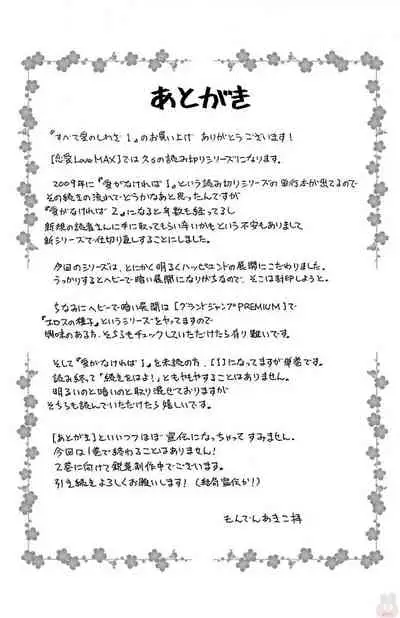 あとがき
『すべて愛のしわざ 1』のお買い上げ ありがとうございます!
[恋愛LoveMAX]では久々の読み切りシリーズになります。
2009年に『愛がなければ 1』という読み切りシリーズの単行本が出てるので
その続きの流れでどうかなぁと思ったんですが
『愛がなければ 2』になると年数も経ってるし
新規の読者さんに手に取ってもらい辛いかもという不安もありまして
新シリーズで仕切り直しすることにしました。
今回のシリーズは、とにかく明るくハッピーエンドの展開にこだわりました。
うっかりするとヘビーで暗い展開になりがちなので、そこは封印しようと。
ちなみにヘビーで暗い展開は[グランドジャンプPREMIUM]で
『エロスの種子』というシリーズをやってますので
興味のある方、そちらもチェックしていただけたら有り難いです。
そして『愛がなければ 1』を未読の方、[1]になってますが単巻です。
読み終って『続きをはよ!』ともやもやすることはありません。
明るいのと暗いのと取り混ぜておりますが
そちらも読んでいただけたら嬉しいです。
[あとがき]といいつつほぼ宣伝になっちゃってすみません。
今回は1巻で終わることはありません!
2巻に向けて鋭意制作中でございます。
引き続きよろしくお願いします!(結局宣伝か!)
もんでんあきこ拝